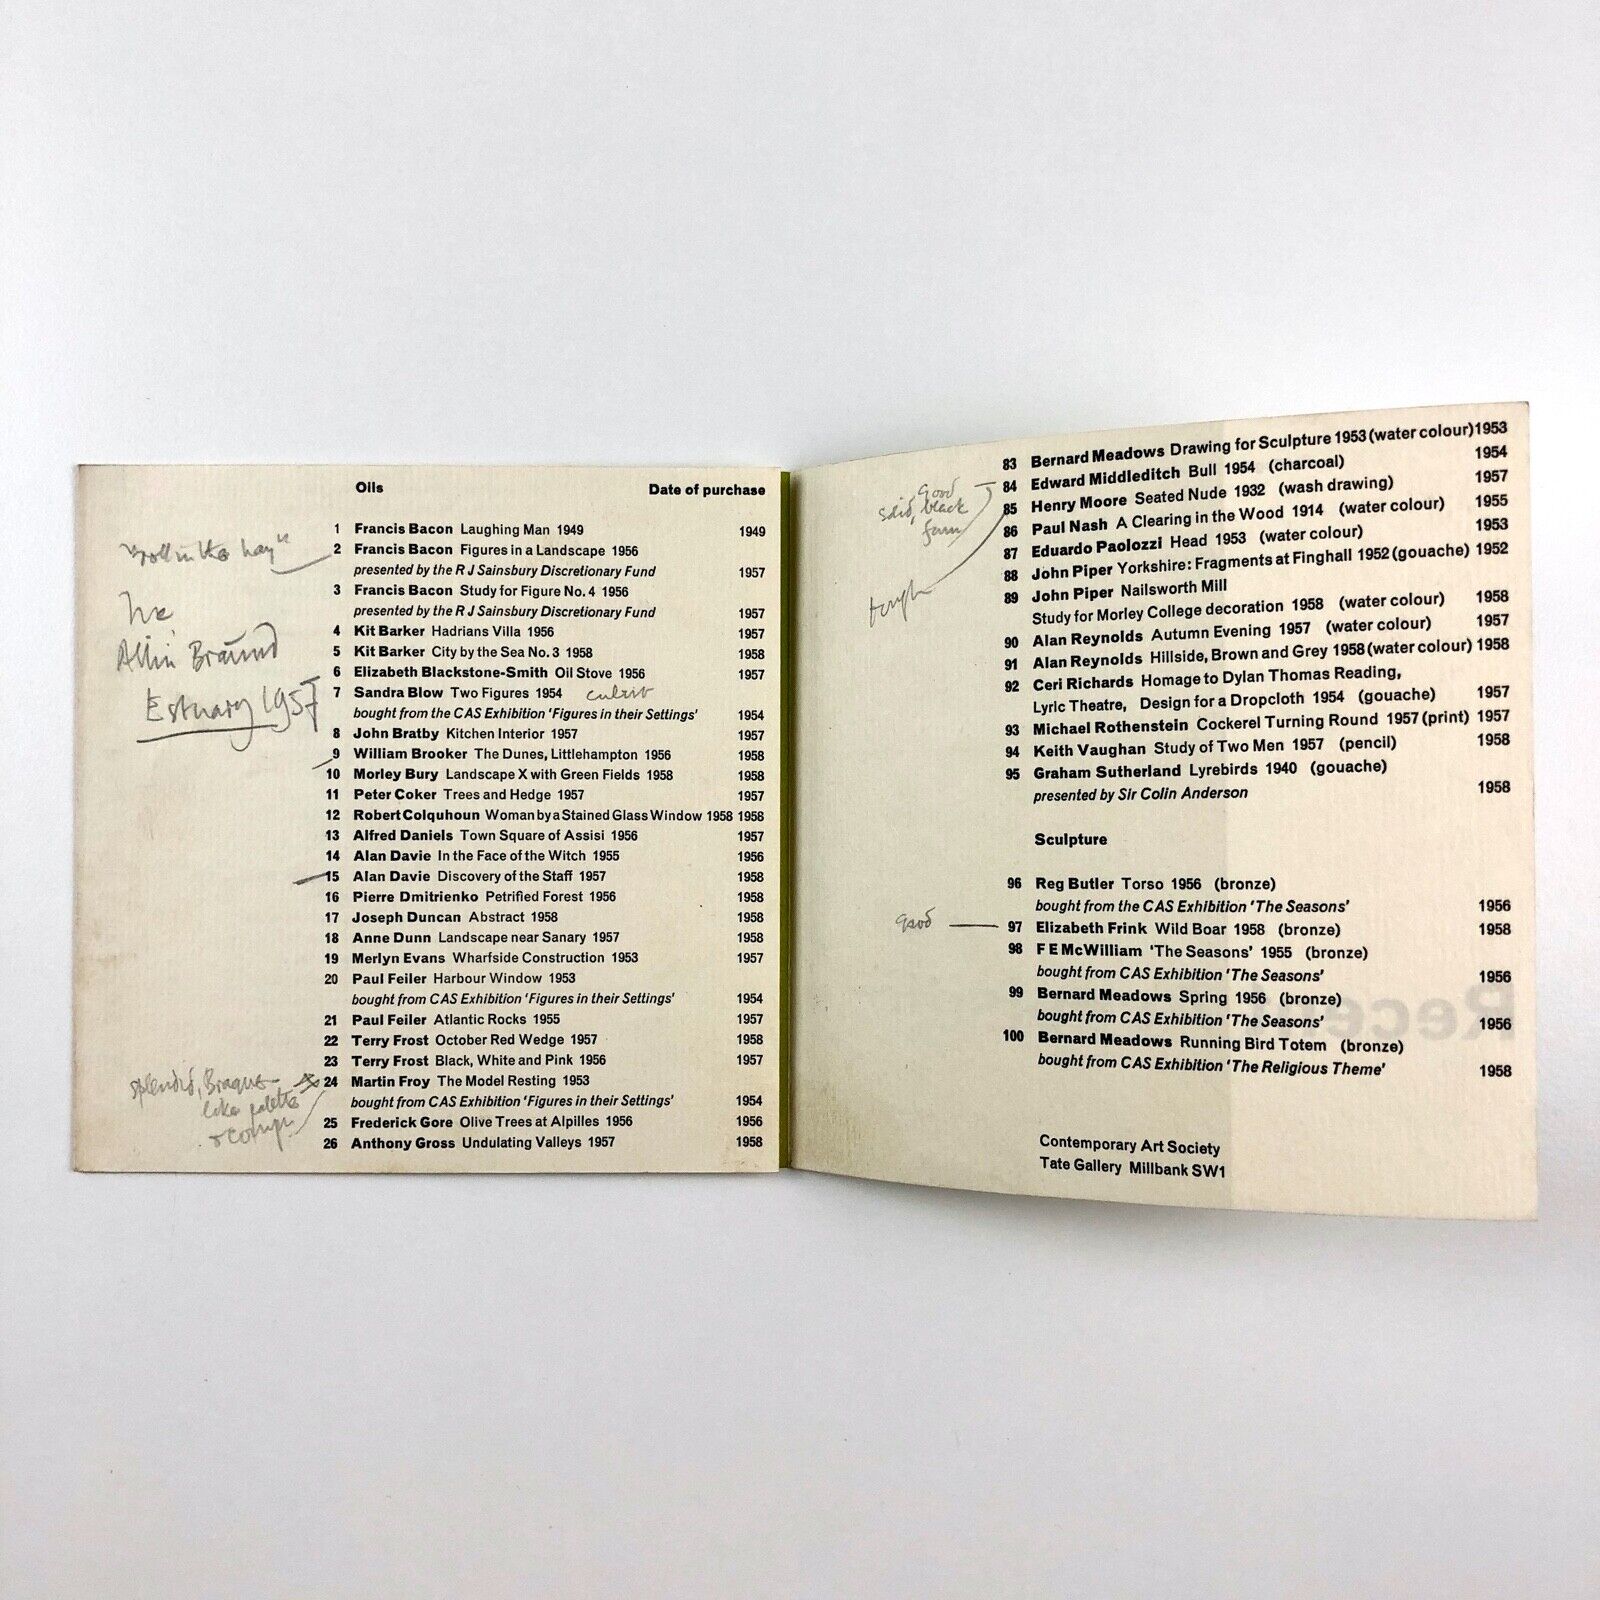 Oils Date of purchase
1 Francis Bacon Laughing Man 1949 1949
2 Francis Bacon Figures in a Landscape 1956
presented by the R J Sainsbury Discretionary Fund 1957
3 Francis Bacon Study for Figure No. 4 1956
presented by the R J Sainsbury Discretionary Fund 1957
4 Kit Barker Hadrians Villa 1956 1957
5 Kit Barker City by the Sea No. 3 1958 1958
6 Elizabeth Blackstone-Smith Oil Stove 1956 1957
7 Sandra Blow Two Figures 1954
bought from the CAS Exhibition 'Figures in their Settings' 1954
8 John Bratby Kitchen Interior 1957 1957
9 William Brooker The Dunes, Littlehampton 1956 1958
10 Morley Bury Landscape X with Green Fields 1958 1958
11 Peter Coker Trees and Hedge 1957 1957
12 Robert Colquhoun Woman by a Stained Glass Window 1958 1958
13 Alfred Daniels Town Square of Assisi 1956 1957
14 Alan Davie In the Face of the Witch 1955 1956
15 Alan Davie Discovery of the Staff 1957 1958
16 Pierre Dmitrienko Petrified Forest 1956 1958
17 Joseph Duncan Abstract 1958 1958
18 Anne Dunn Landscape near Sanary 1957 1958
19 Merlyn Evans Wharfside Construction 1953 1957
20 Paul Feiler Harbour Window 1953
bought from CAS Exhibition 'Figures in their Settings' 1954
21 Paul Feiler Atlantic Rocks 1955 1957
22 Terry Frost October Red Wedge 1957 1958
23 Terry Frost Black, White and Pink 1956 1957
24 Martin Froy The Model Resting 1953
bought from CAS Exhibition 'Figures in their Settings' 1954
25 Frederick Gore Olive Trees at Alpilles 1956 1956
26 Anthony Gross Undulating Valleys 1957 1958
"roll in the hay"
Allin Braund
Estuary 1957
splendid, Braque-
like palette
83 Bernard Meadows Drawing for Sculpture 1953 (water colour) 1953
84 Edward Middleditch Bull 1954 (charcoal) 1954
85 Henry Moore Seated Nude 1932 (wash drawing) 1957
86 Paul Nash A Clearing in the Wood 1914 (water colour) 1955
87 Eduardo Paolozzi Head 1953 (water colour) 1953
88 John Piper Yorkshire: Fragments at Finghall 1952 (gouache) 1952
89 John Piper Nailsworth Mill
Study for Morley College decoration 1958 (water colour) 1958
90 Alan Reynolds Autumn Evening 1957 (water colour) 1957
91 Alan Reynolds Hillside, Brown and Grey 1958 (water colour) 1958
92 Ceri Richards Homage to Dylan Thomas Reading,
Lyric Theatre, Design for a Dropcloth 1954 (gouache) 1957
93 Michael Rothenstein Cockerel Turning Round 1957 (print) 1957
94 Keith Vaughan Study of Two Men 1957 (pencil) 1958
95 Graham Sutherland Lyrebirds 1940 (gouache)
presented by Sir Colin Anderson 1958
Sculpture
96 Reg Butler Torso 1956 (bronze)
bought from the CAS Exhibition 'The Seasons' 1956
97 Elizabeth Frink Wild Boar 1958 (bronze) 1958
98 F E McWilliam 'The Seasons' 1955 (bronze)
bought from CAS Exhibition 'The Seasons' 1956
99 Bernard Meadows Spring 1956 (bronze)
bought from CAS Exhibition 'The Seasons' 1956
100 Bernard Meadows Running Bird Totem (bronze)
bought from CAS Exhibition 'The Religious Theme' 1958
Contemporary Art Society
Tate Gallery Millbank SW1
good
solid, black
form
tough
good